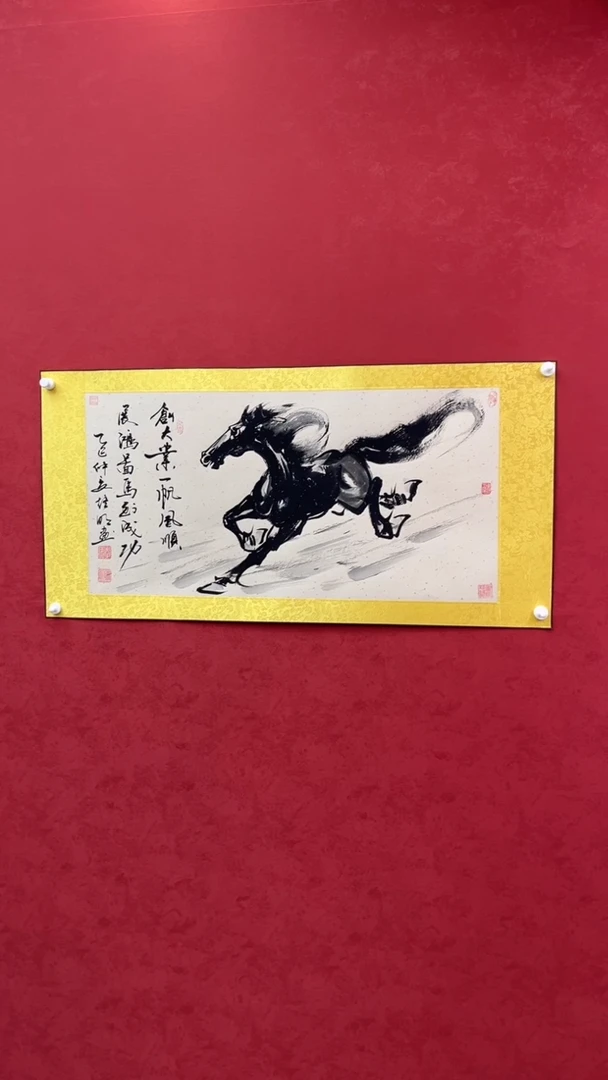 創大業一帆風順
展鴻圖馬到成功
乙巳仲夏佳明畫